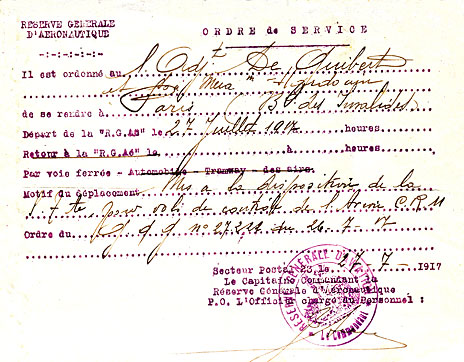 RÉSERVE GÉNÉRALE
D'AÉRONAUTIQUE
-:-:-:-:-:-
ORDRE de SERVICE
Il est ordonné au l'Adjt De Guibert
et
de se rendre à Paris Bd des Invalides
Départ de la "R.G.Aé" le 27 Juillet 1917 heures
Retour à la "R.G.Aé" le à heures
Par voie ferrée - Automobile - Tramway - des airs.
Motif du déplacement Mis à la disposition de la
pour vol de contrôle de l'Avion C.R.M
Ordre du G Q G n° 27.222 du 26-7-17
Secteur Postal 23, le 27-7-1917
Le Capitaine Commandant la
Réserve Générale d'Aéronautique
P.O. L'Officier chargé du Personnel :